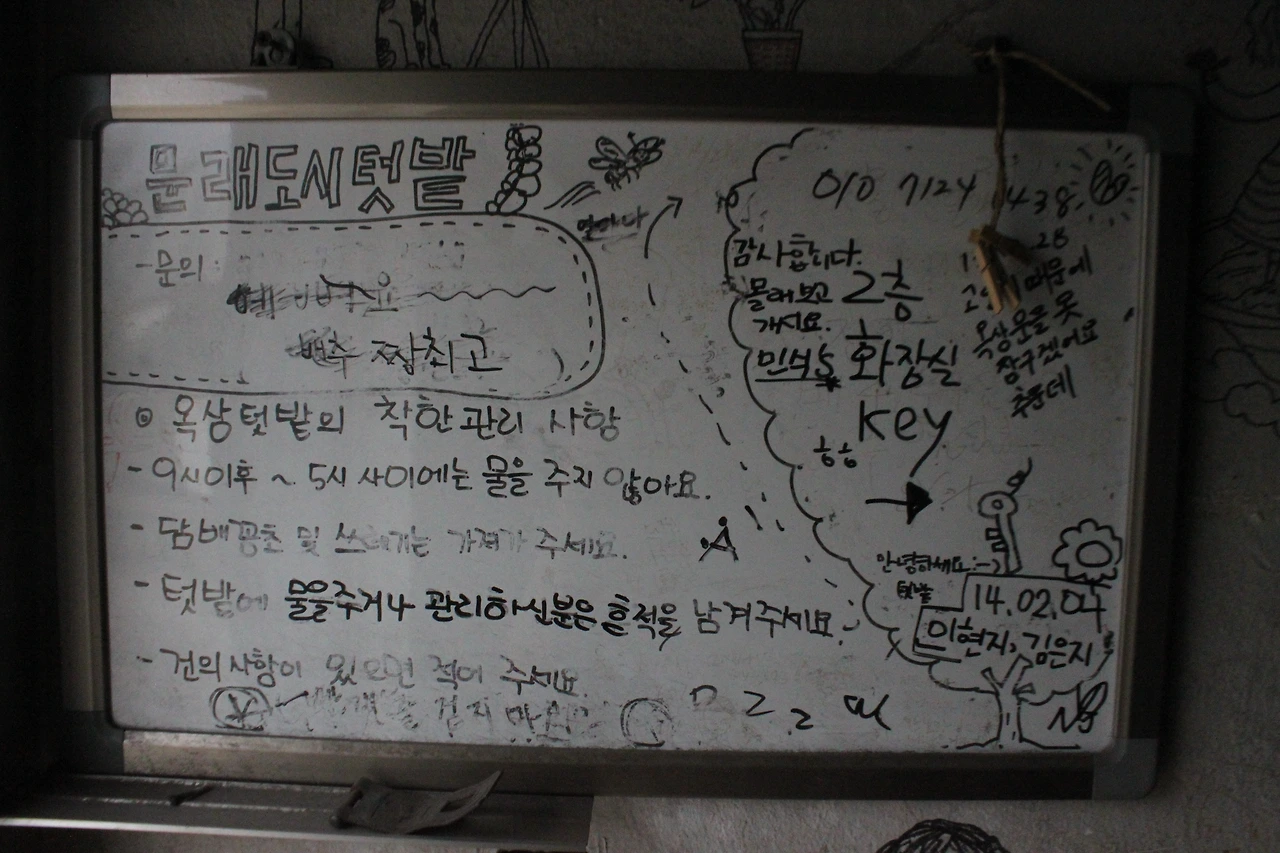 문래도시텃밭
얼마나
-문의:
배추 짱 최고
◎ 옥상텃밭의 착한관리 사항
- 9시이후 ~ 5시 사이에는 물을 주지 않아요.
- 담배꽁초 및 쓰레기는 가져가 주세요.
- 텃밭에 물을주거나 관리하신분은 흔적을 남겨주세요.
- 건의사항이 있으면 적어 주세요.
010 7124 438
감사합니다.
몰래보고
가셔요.
2층
화장실
key
→
때문에
옥상문을 못
장구겠어요
추운데
안녕하세요:-)
텃밭
14.02.04
이현지, 김은지